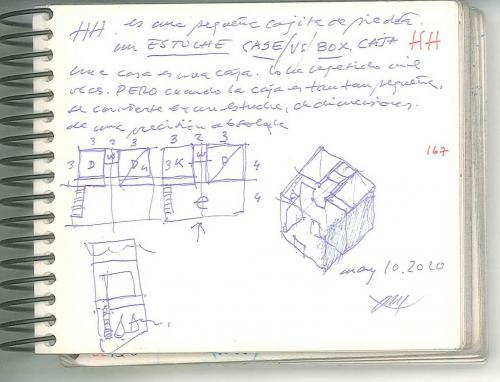 HH. es una pequeña cajita de piedra.
un ESTUCHE CASE/VS/BOX. CAJA HH
una casa es una caja. lo he repetido mil
veces. PERO cuando la caja es tan tan pequeña,
se convierte en un estuche, de dimensiones.
de una precisión absoluta
3 2 3 3 2 3
3 D W D 3 K W D 4
4
e
167
may 10.2020